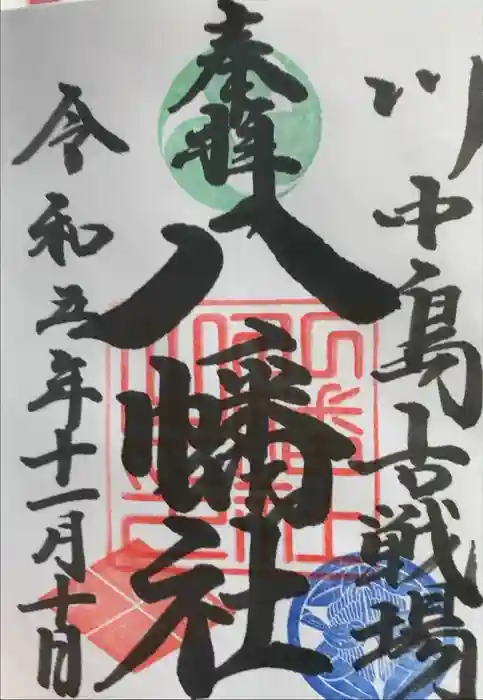 川中島古戦場
奉拝
八幡社
令和五年十一月十日